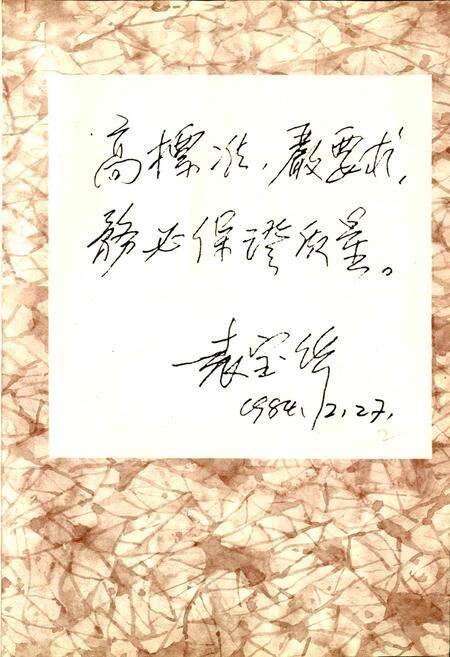 高標准，嚴要求，
務必保證质量。
袁宝华
1984.12.27.
2